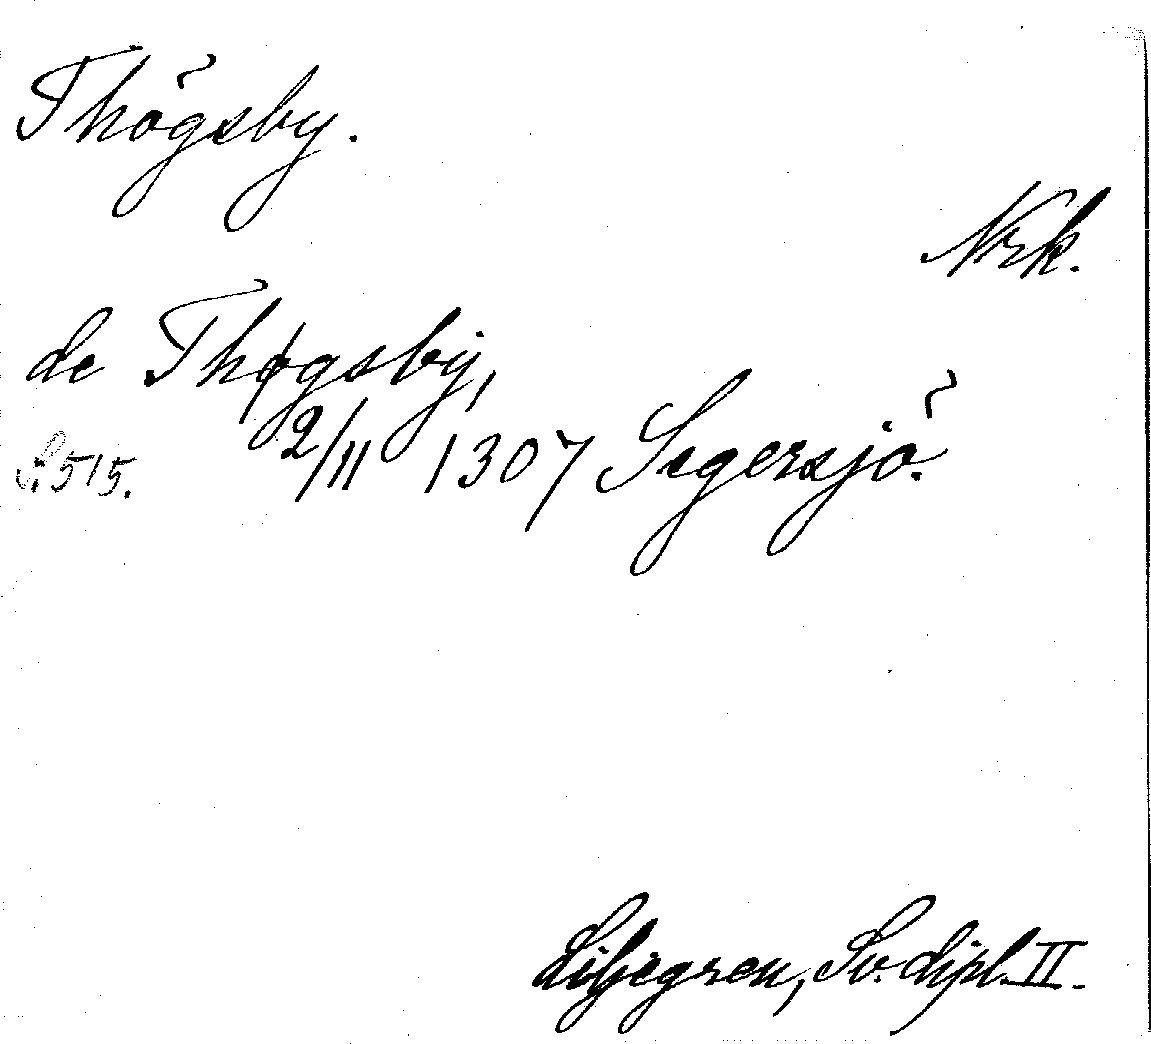 Thögsby.
Nrk.
de Thøgsbÿ,
S. 515. 2/11 1307 Segersjö.
Liljegren, Sv. dipl. II.